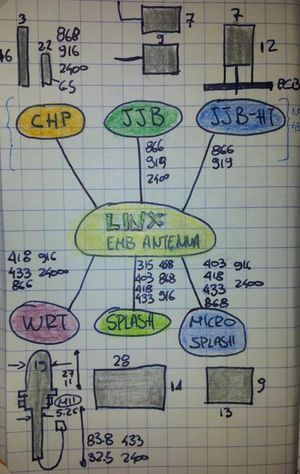 3
22
868
916
2400
6.5
7
9
7
12
PCB
CHP
JJB
JJB-HT
866
919
2400
866
919
LINX
EMB ANTENNA
418 916
433 2400
866
315 458
403 868
418
433 916
403 916
418
433 2400
868
WRT
SPLASH
MICRO
SPLASH
19
27
11
M11
5.26
28
14
9
13
83.8 433
32.5 2400